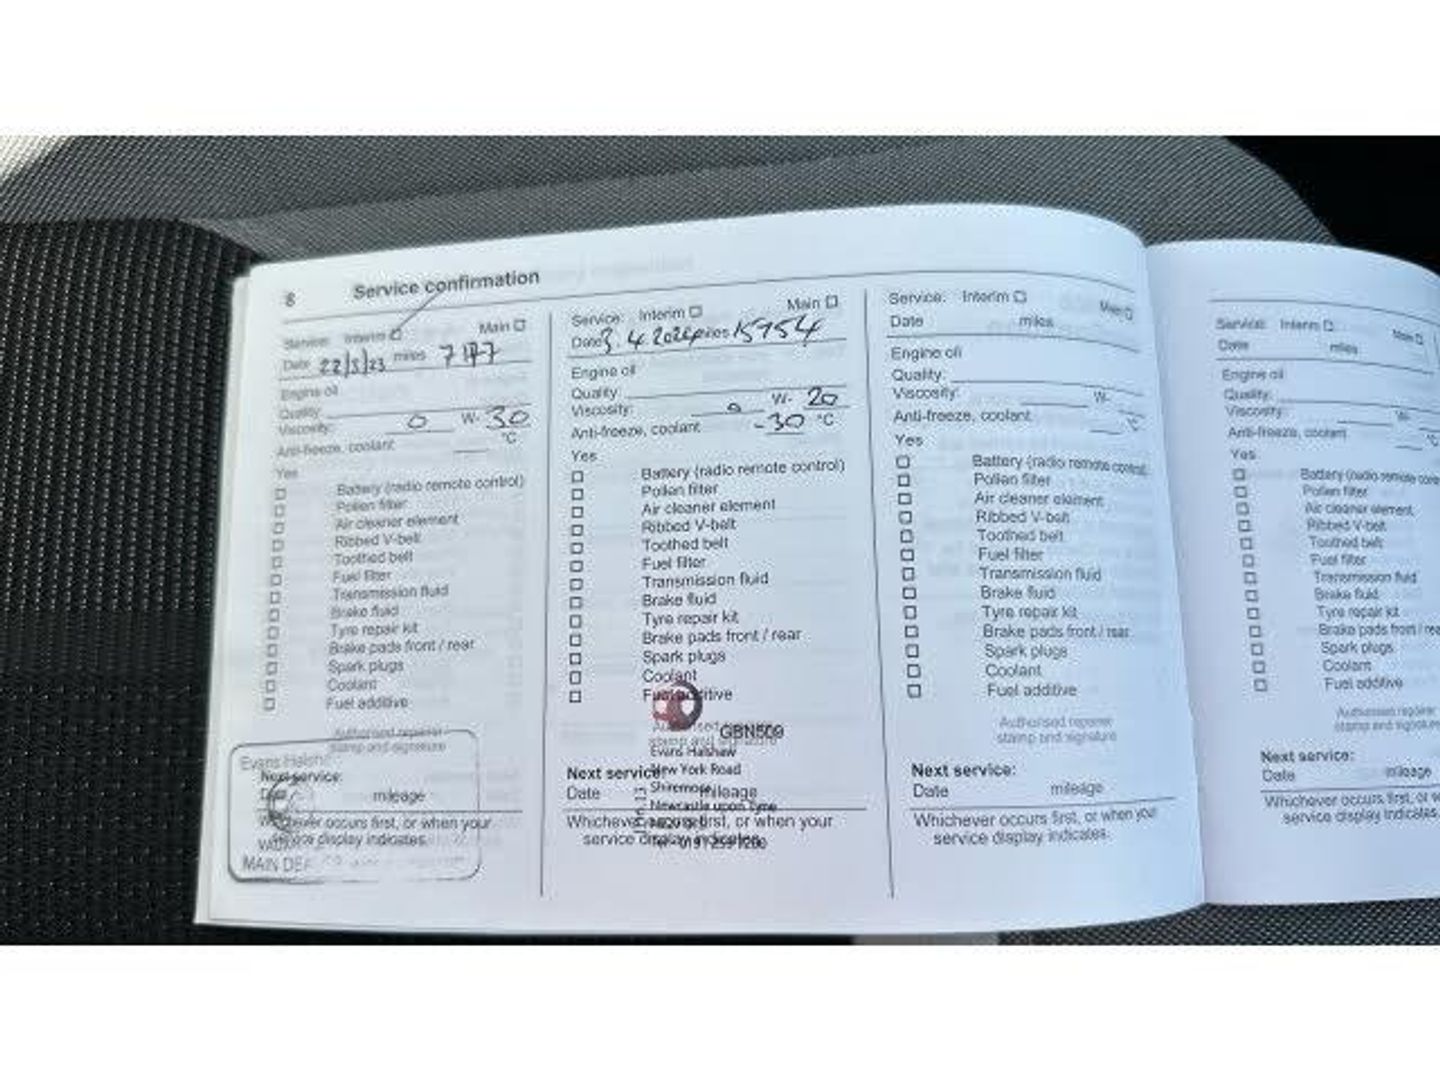 8 Service confirmation
Service: Interim Main
Date 22/3/23 miles
Engine oil
Quality:
Viscosity: 0 W- 30
Anti-freeze, coolant °C
Yes
Battery (radio remote control)
Pollen filter
Air cleaner element
Ribbed V-belt
Toothed belt
Fuel filter
Transmission fluid
Brake fluid
Tyre repair kit
Brake pads front / rear
Spark plugs
Coolant
Fuel additive
Authorised repairer
stamp and signature
Evans
Next service:
mileage
Whichever occurs first, or when your
service display indicates.
MAIN
Service: Interim Main
Date 3.4.2024 miles 15754
Engine oil
Quality:
Viscosity: 0 W- 20
Anti-freeze, coolant -30 °C
Yes
Battery (radio remote control)
Pollen filter
Air cleaner element
Ribbed V-belt
Toothed belt
Fuel filter
Transmission fluid
Brake fluid
Tyre repair kit
Brake pads front / rear
Spark plugs
Coolant
Fuel additive
Authorised repairer
stamp and signature
GBN509
Evans Halshaw
New York Road
Shiremoor
Newcastle upon Tyne
Next service:
Date mileage
Whichever occurs first, or when your
service display indicates.
Service: Interim Main
Date miles
Engine oil
Quality:
Viscosity: W-
Anti-freeze, coolant °C
Yes
Battery (radio remote control)
Pollen filter
Air cleaner element
Ribbed V-belt
Toothed belt
Fuel filter
Transmission fluid
Brake fluid
Tyre repair kit
Brake pads front / rear
Spark plugs
Coolant
Fuel additive
Authorised repairer
stamp and signature
Next service:
Date mileage
Whichever occurs first, or when your
service display indicates.
Service: Interim Main
Date miles
Engine oil
Quality:
Viscosity: W-
Anti-freeze, coolant °C
Yes
Battery (radio remote
Pollen filter
Air cleaner element
Ribbed V-belt
Toothed belt
Fuel filter
Transmission fluid
Brake fluid
Tyre repair kit
Brake pads front /
Spark plugs
Coolant
Fuel additive
Authorised repairer
stamp and signature
Next service:
Date mileage
Whichever occurs first, or
service display indicates.